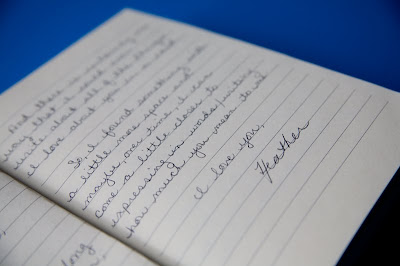 And there is no
way that I could
write about all of the things
I love about you in a
So, I found something with
a little more space and
maybe, over time, I can
come a little closer to
expressing in words/writing
how much you mean to me.
I love you,
Heather
long